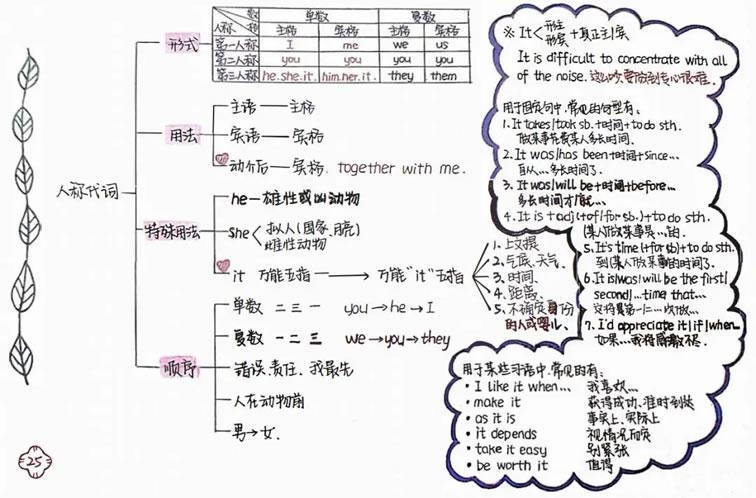 人称代词
形式
数 格 人称
单数 复数
主格 宾格 主格 宾格
第一人称 I me we us
第二人称 you you you you
第三人称 he.she.it. him.her.it. they them
用法
主语 — 主格
宾语 — 宾格
动介后 — 宾格. together with me.
特殊用法
he — 雄性或凶动物
she < 拟人(国家、月亮)
雌性动物
it 万能五指 → 万能"it"五指
1. 上文提
2. 气候、天气
3. 时间、
4. 距离、
5. 不确定身份
的人或婴儿、
顺序
单数 二 三 一 you → he → I
复数 一 二 三 we → you → they
错误、责任、我最先
人在动物前
男 → 女.
25
※ It < 形主
形宾 + 真正主/宾
It is difficult to concentrate with all
of the noise.
用于固定句中,常见的句型有:
1. It takes/took sb. +时间+ to do sth.
做某事花费某人多长时间.
2. It was/has been +时间+ since...
自从...多长时间了.
3. It was/will be +时间+ before...
多长时间才/就...
4. It is + adj (+of/for sb.) + to do sth.
(某人)做某事是...的.
5. It's time (+for sb) + to do sth.
到(某人)做某事的时间了.
6. It is/was/will be the first/
second/...time that...
这将是第一/...次做...
7. I'd appreciate it/if/when..
如果...我将感激不尽.
用于某些习语中,常见的有:
• I like it when... 我喜欢...
• make it 获得成功、准时到达
• as it is 事实上、实际上
• it depends 视情况而定
• take it easy 别紧张
• be worth it 值得